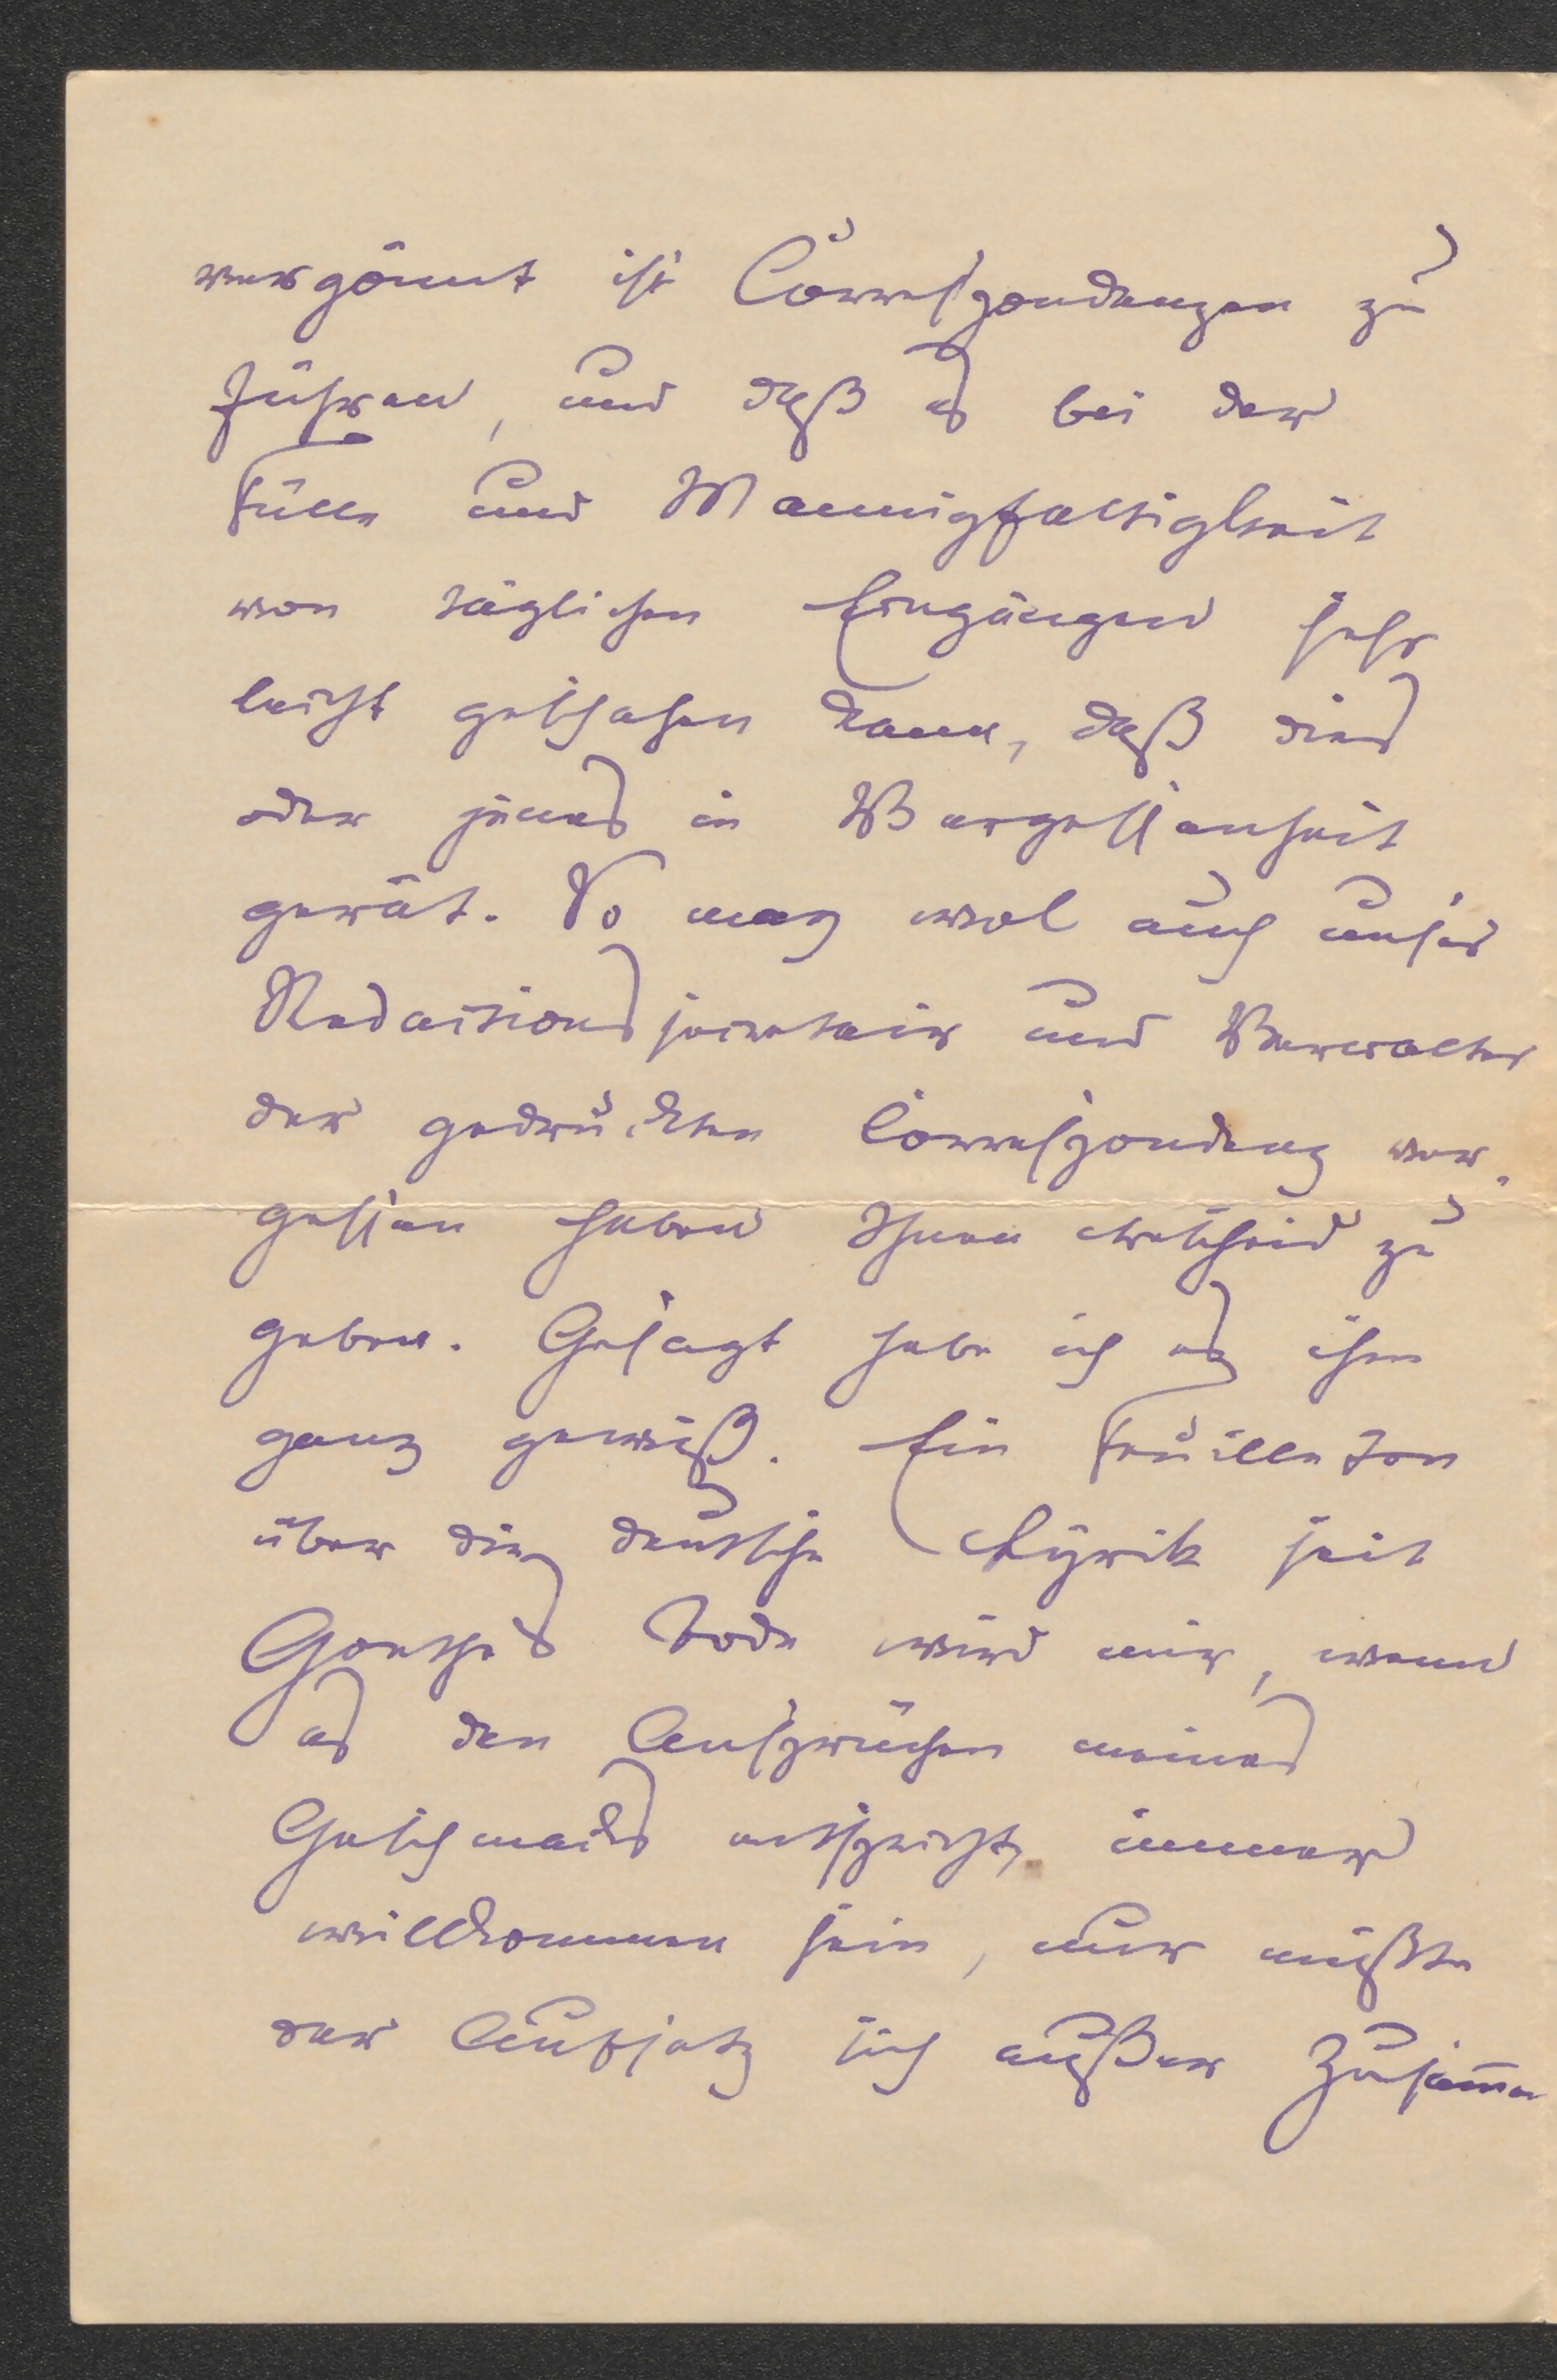 vergönnt ist Correspondenzen zu
führen, und daß es bei der
Fülle und Mannigfaltigkeit
von täglichen Eingängen sehr
leicht geschehen kann, daß dies
oder jenes in Vergessenheit
gerät. So mag wol auch unser
Redactionssecretair und Verwalter
der gedruckten Correspondenz ver-
gessen haben Ihnen Bescheid zu
geben. Gesagt habe ich es ihm
ganz gewiß. Ein Feuilleton
über die deutsche Lyrik seit
Goethes Tode wird mir, wenn
es den Ansprüchen meines
Geschmacks entspricht, immer
willkommen sein, nur müßte
der Aufsatz sich außer Zusam̅en